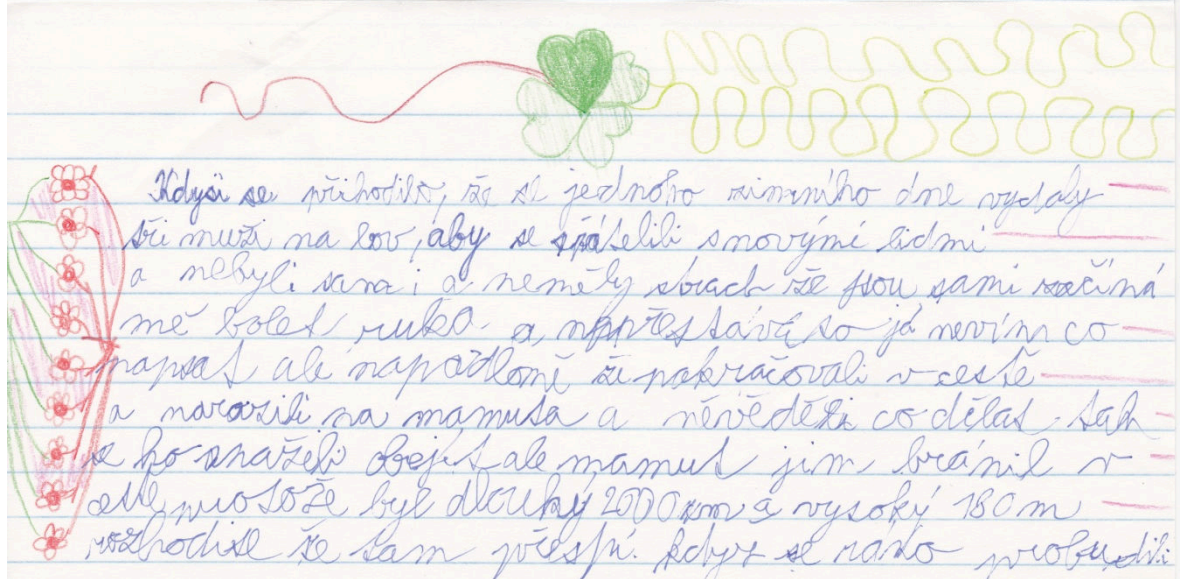 Kdysi se přihodilo, že se jednoho zimního dne vydaly
tři muži na lov, aby se spřátelili snovými lidmi
a nebyli sami a neměly strach že jsou sami začíná
mě bolet ruka. a nepřestává to já nevím co
napsat ale napadlomě že pokračovali v cestě
a narazili na mamuta a nevěděli co dělat. tak
se ho snažili obejít ale mamut jim bránil v
cestě protože byl dlouhý 2000 km a vysoký 180 m
rozhodlise že tam přespí. když se ráno probudili